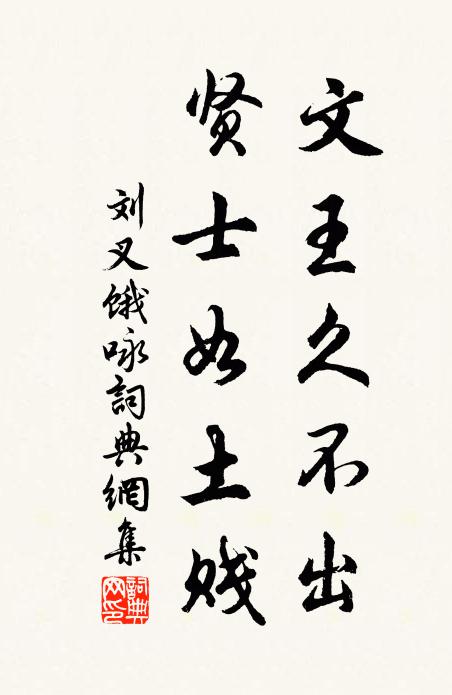 文王久不出
贤士如土贱
刘叉饿咏詞典網集
詞典网印